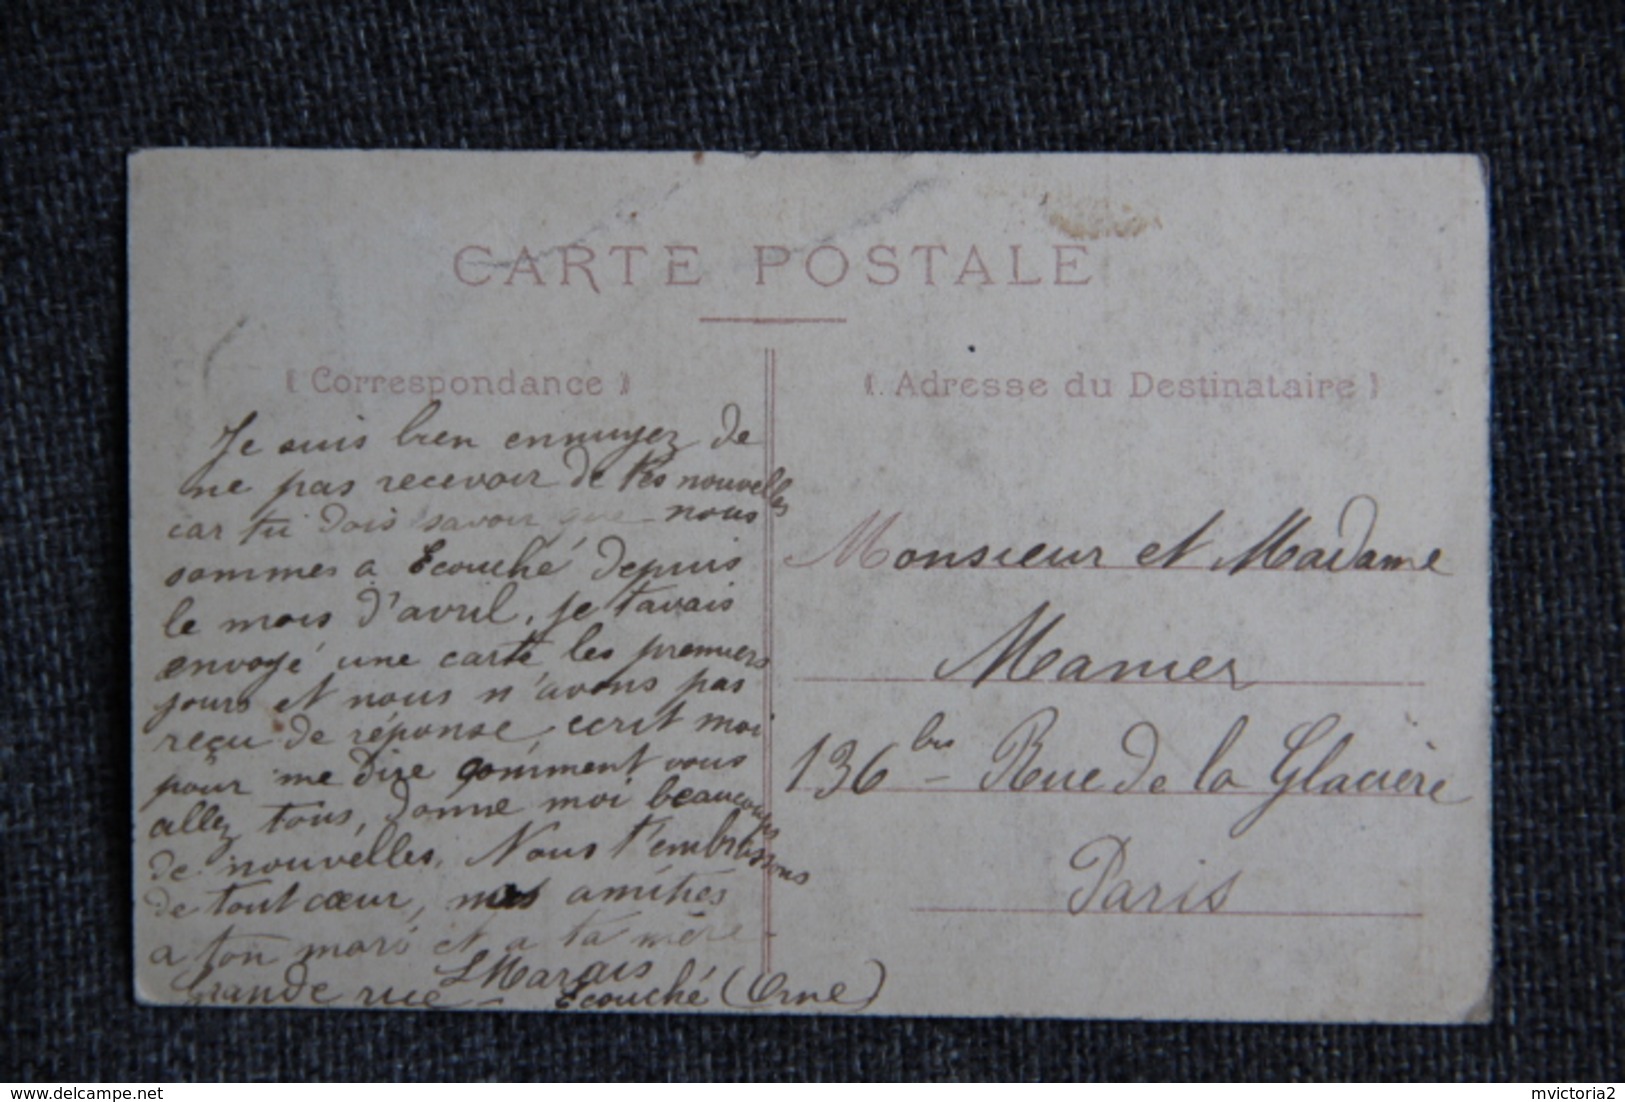 CARTE POSTALE
( Correspondance )
Je suis bien ennuyez de
ne pas recevoir de tes nouvelles
car tu dois savoir que nous
sommes a Ecouché depuis
le mois d'avril, je tavais
envoyé une carte les premiers
jours et nous n'avons pas
reçu de réponse, ecrit moi
pour me dire comment vous
allez tous, donne moi beaucoups
de nouvelles. Nous t'embrassons
de tout cœur, mes amitiés
a ton mari et a ta mère
L Marais
Grande rue - Ecouché (Orne)
( Adresse du Destinataire )
Monsieur et Madame
Mamer
136 bis - Rue de la Glacière
Paris
delcampe.net
mvictoria2